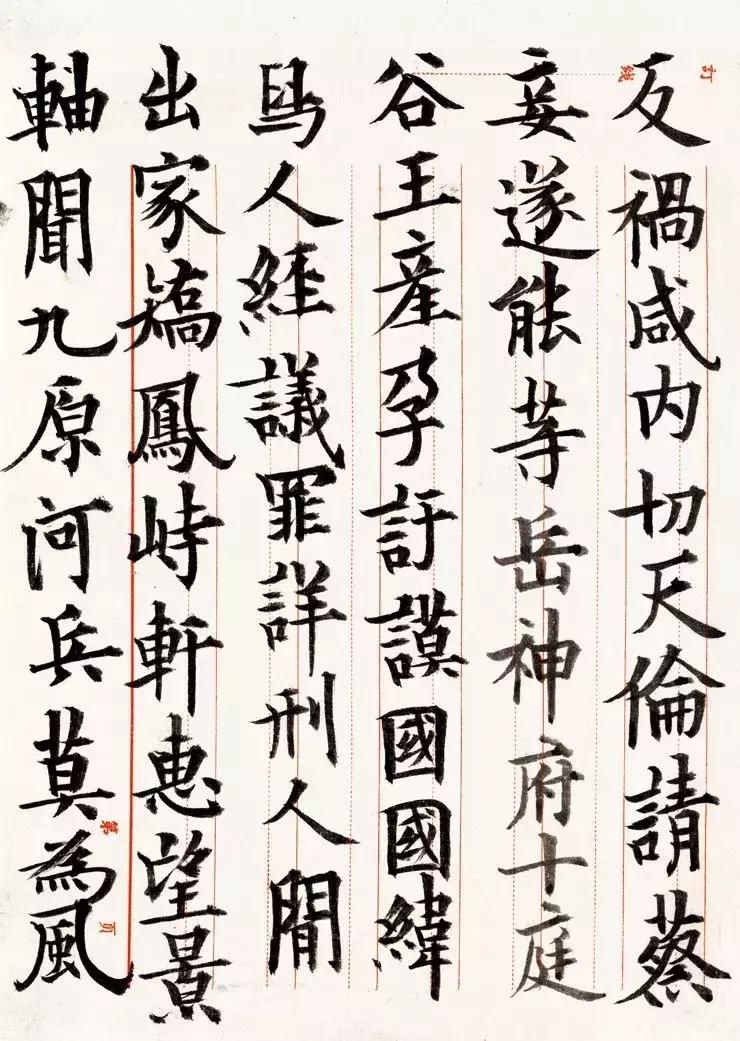 反禍咸内切天倫請蔡
妄遂能等岳神府十庭
谷王產孕訏謨國國緯
人經議罪詳刑人閒
出家矯鳳峙軒惠望景
軸聞九原河兵莫為風
訂
線
第
頁